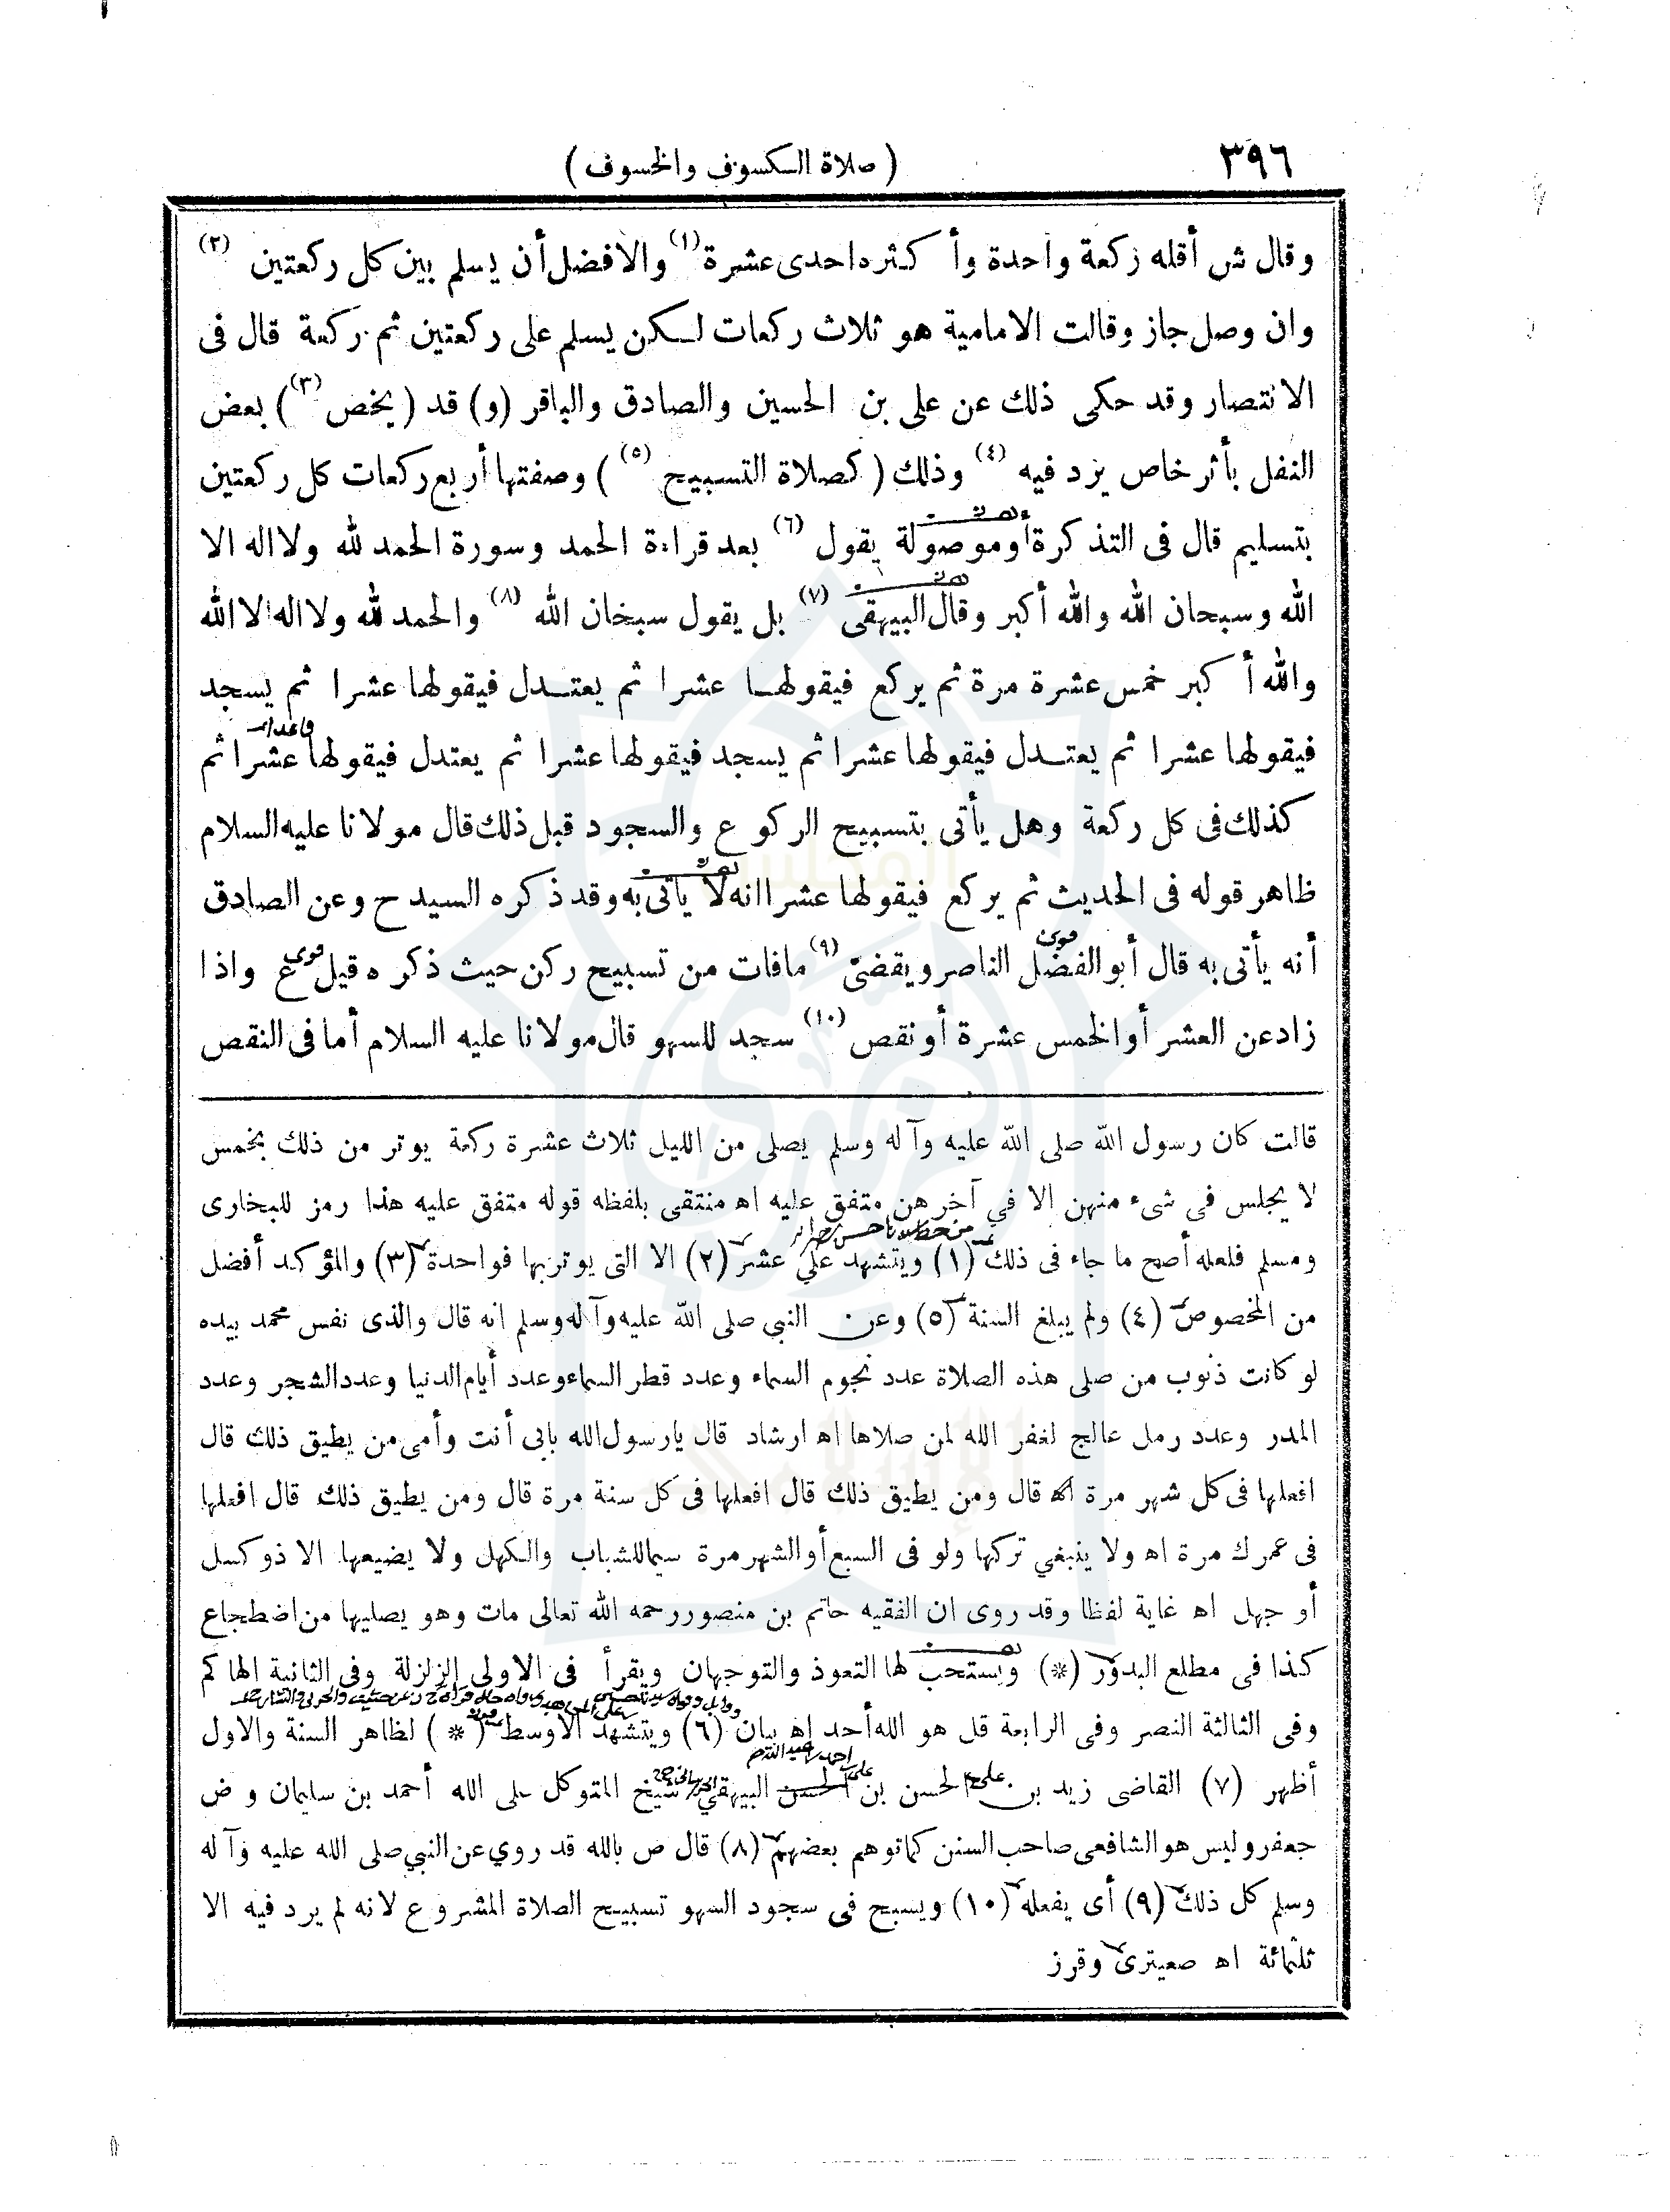 ٣٩٦
( صلاة الكسوف والخسوف )
وقال ش أقله ركعة واحدة وأكثره احدى عشرة (١) والافضل أن يسلم بين كل ركعتين (٢)
وان وصل جاز وقالت الامامية هو ثلاث ركعات لكن يسلم على ركعتين ثم ركعة قال فى
الانتصار وقد حكى ذلك عن على بن الحسين والصادق والباقر (و) قد ( يخص (٣) ) بعض
النفل بأثر خاص يرد فيه (٤) وذلك ( كصلاة التسبيح (٥) ) وصفتها أربع ركعات كل ركعتين
بتسليم قال فى التذكرة أوموصولة يقول (٦) بعد قراءة الحمد وسورة الحمد لله ولا اله الا
الله وسبحان الله والله أكبر وقال البيهقى (٧) بل يقول سبحان الله (٨) والحمد لله ولا اله الا الله
والله أكبر خمس عشرة مرة ثم يركع فيقولها عشرا ثم يعتدل فيقولها عشرا ثم يسجد
فيقولها عشرا ثم يعتدل فيقولها عشرا ثم يسجد فيقولها عشرا ثم يعتدل فيقولها عشرا ثم
كذلك فى كل ركعة وهل يأتى بتسبيح الركوع والسجود قبل ذلك قال مولانا عليه السلام
ظاهر قوله فى الحديث ثم يركع فيقولها عشرا انه لا يأتى به وقد ذكره السيد ح وعن الصادق
أنه يأتى به قال أبو الفضل الناصر ويقضى (٩) مافات من تسبيح ركن حيث ذكره قيل ع واذا
زاد عن العشر أوالخمس عشرة أونقص (١٠) سجد للسهو قال مولانا عليه السلام أما فى النقص
قالت كان رسول الله صلى الله عليه وآله وسلم يصلى من الليل ثلاث عشرة ركعة يوتر من ذلك بخمس
لا يجلس فى شىء منهن الا في آخرهن متفق عليه اه منتقى بلفظه قوله متفق عليه هذا رمز للبخارى
ومسلم فلعله أصح ما جاء فى ذلك (١) ويتشهد علي عشر (٢) الا التى يوتر بها فواحدة (٣) والمؤكد أفضل
من المخصوص (٤) ولم يبلغ السنة (٥) وعن النبي صلى الله عليه وآله وسلم انه قال والذى نفس محمد بيده
لو كانت ذنوب من صلى هذه الصلاة عدد نجوم السماء وعدد قطر السماء وعدد أيام الدنيا وعدد الشجر وعدد
المدر وعدد رمل عالج لغفر الله لمن صلاها اه ارشاد قال يا رسول الله بابى أنت وأمى من يطيق ذلك قال
افعلها فى كل شهر مرة اه قال ومن يطيق ذلك قال افعلها فى كل سنة مرة قال ومن يطيق ذلك قال افعلها
فى عمرك مرة اه ولا ينبغي تركها ولو فى السبع أو الشهر مرة سيما للشباب والكهل ولا يضيعها الا ذو كسل
أو جهل اه غاية لفظا وقد روى ان الفقيه حاتم بن منصور رحمه الله تعالى مات وهو يصليها من اضطجاع
كذا في مطلع البدور (*) ويستحب لها التعوذ والتوجهان ويقرأ فى الاولى الزلزلة وفى الثانية الهاكم
وفى الثالثة النصر وفى الرابعة قل هو الله أحد اه بيان (٦) ويتشهد الاوسط ( * ) لظاهر السنة والاول
أظهر (٧) القاضى زيد بن علي الحسن بن علي الحسن البيهقى شيخ المتوكل على الله أحمد بن سليمان و ض
جعفر وليس هو الشافعى صاحب السنن كماتوهم بعضهم (٨) قال ص بالله قد روي عن النبي صلى الله عليه وآله
وسلم كل ذلك (٩) أى يفعله (١٠) ويسبح فى سجود السهو تسبيح الصلاة المشروع لانه لم يرد فيه الا
ثلثمائة اه صعيترى وقرز